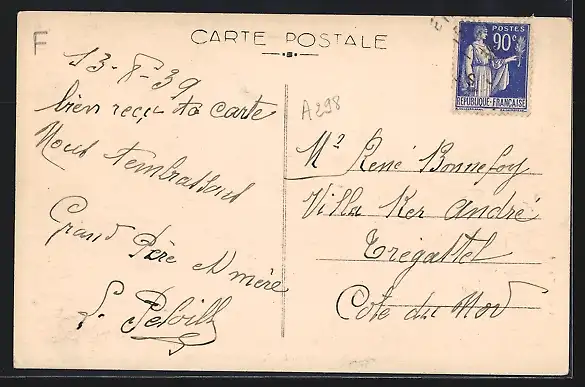 F
CARTE POSTALE
POSTES
90c
REPUBLIQUE FRANÇAISE
A298
13-8-39
bien reçu ta carte
Nous t'embrassons
Grand Père et mère
L.
Mr René Bonnefoy
Villa Ker André
Trégastel
Côte du Nord